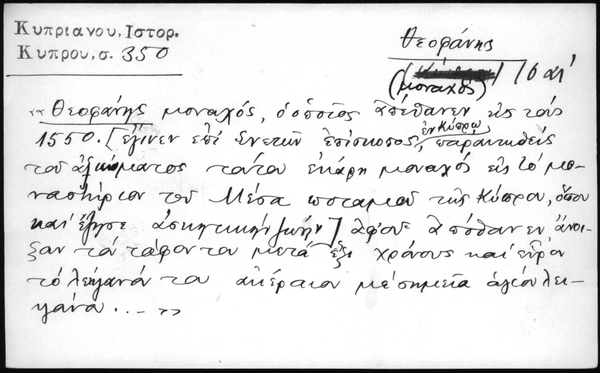 Κυπριανου, Ιστορ.
Κυπρου, σ. 350
Θεοφάνης
(μοναχός) 16 αἰ
"Θεοφάνης μοναχός, ὁ ὁποῖος ἀπέθανεν εἰς τοὺς
1550. [ἔγινεν ἐπί Ενετῶν ἐπίσκοπος ἐν Κύπρῳ, παραιτηθείς
του ἀξιώματος τούτου ἐκάρη μοναχός εἰς τό μο-
ναστήριον του Μέσα ποταμού τῆς Κύπρου, ὅπου
και ἔζησε ἀσκητικήν ζωήν] ἀφού ἀπόθανεν ἄνοι-
ξαν τό τάφον του μετά ἕξι χρόνους και εὗρον
τό λείψανό του ἀκέραιον μέ σημεία ἁγίου λει-
ψάνου... — "